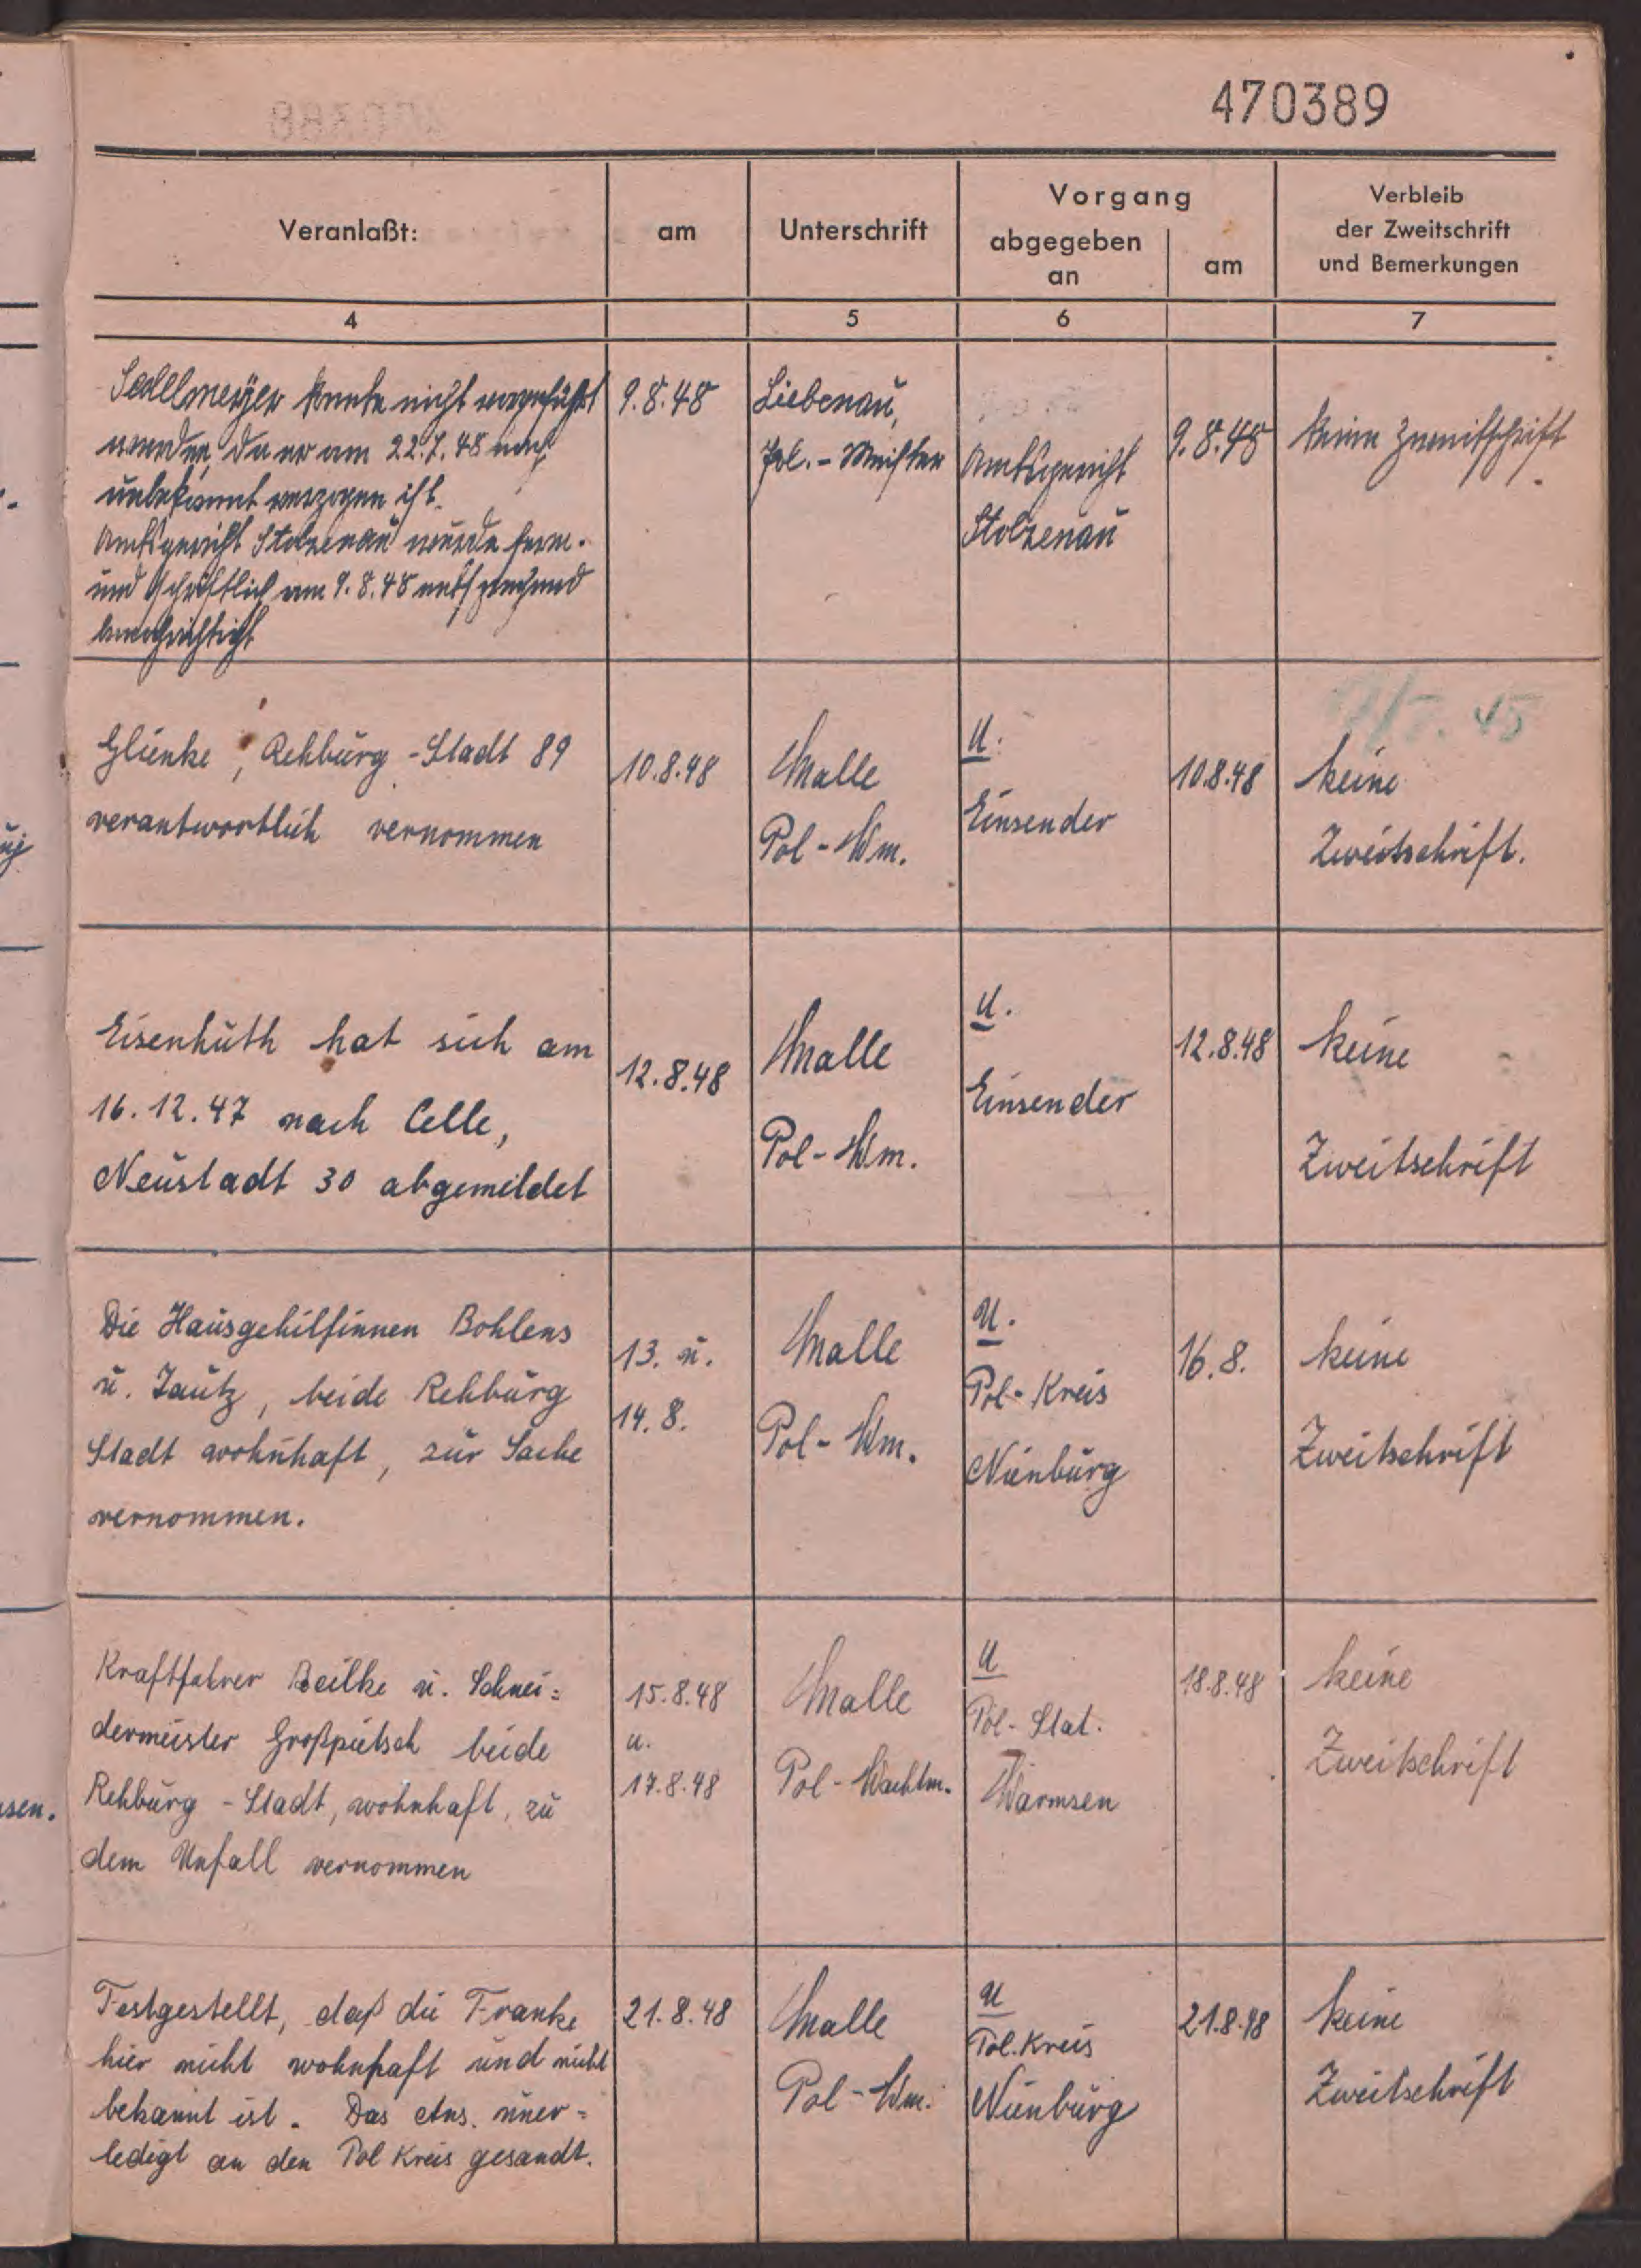 470389
Veranlaßt:
am
Unterschrift
Vorgang
abgegeben
an
am
Verbleib
der Zweitschrift
und Bemerkungen
4
5
6
7
Sedelmeyer konnte nicht vorgeführt
werden, da er am 22.7.48 nach
unbekannt verzogen ist.
Amtsgericht Stolzenau wurde fern-
und schriftlich am 9.8.48 entsprechend
benachrichtigt
9.8.48
Liebenau,
Pol.-Meister
Amtsgericht
Stolzenau
9.8.48
keine Zweitschrift
Glienke, Rehburg-Stadt 89
verantwortlich vernommen
10.8.48
Malle
Pol-Wm.
U.
Einsender
10.8.48
keine
Zweitschrift.
Eisenhuth hat sich am
16.12.47 nach Celle,
Neustadt 30 abgemeldet
12.8.48
Malle
Pol-Wm.
U.
Einsender
12.8.48
keine
Zweitschrift
Die Hausgehilfinnen Bohlens
u. Jautz, beide Rehburg
Stadt wohnhaft, zur Sache
vernommen.
13. u.
14.8.
Malle
Pol-Wm.
U.
Pol-Kreis
Nienburg
16.8.
keine
Zweitschrift
Kraftfahrer Beilke u. Schnei=
dermeister Großpietsch beide
Rehburg-Stadt, wohnhaft, zu
dem Unfall vernommen
15.8.48
u.
17.8.48
Malle
Pol-Wachtm.
U
Pol-Stat.
Warmsen
18.8.48
keine
Zweitschrift
Festgestellt, daß die Franke
hier nicht wohnhaft und nicht
bekannt ist. Das Ans. uner=
ledigt an den Pol Kreis gesandt.
21.8.48
Malle
Pol-Wm.
U
Pol.Kreis
Nienburg
21.8.48
keine
Zweitschrift